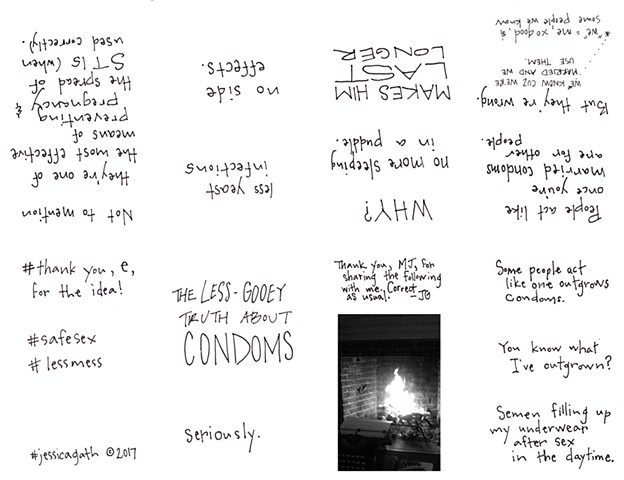 THE LESS-GOOEY
TRUTH ABOUT
CONDOMS
Seriously.
Thank you, MJ, for
sharing the following
with me. Correct
as usual! -JG
Some people act
like one outgrows
condoms.
You know what
I've outgrown?
Semen filling up
my underwear
after sex
in the daytime.
People act like
once you're
married condoms
are for other
people.
But they're wrong.
WE KNOW CUZ WE'RE
MARRIED AND WE
USE THEM.
*"we" = me, xo good, &
some people we know
WHY?
no more sleeping
in a puddle.
MAKES HIM
LAST
LONGER
less yeast
infections
no side
effects.
Not to mention
they're one of
the most effective
means of
preventing
pregnancy &
the spread of
STIs (when
used correctly).
#thank you, e,
for the idea!
#safesex
#lessmess
#jessicagath ©2017